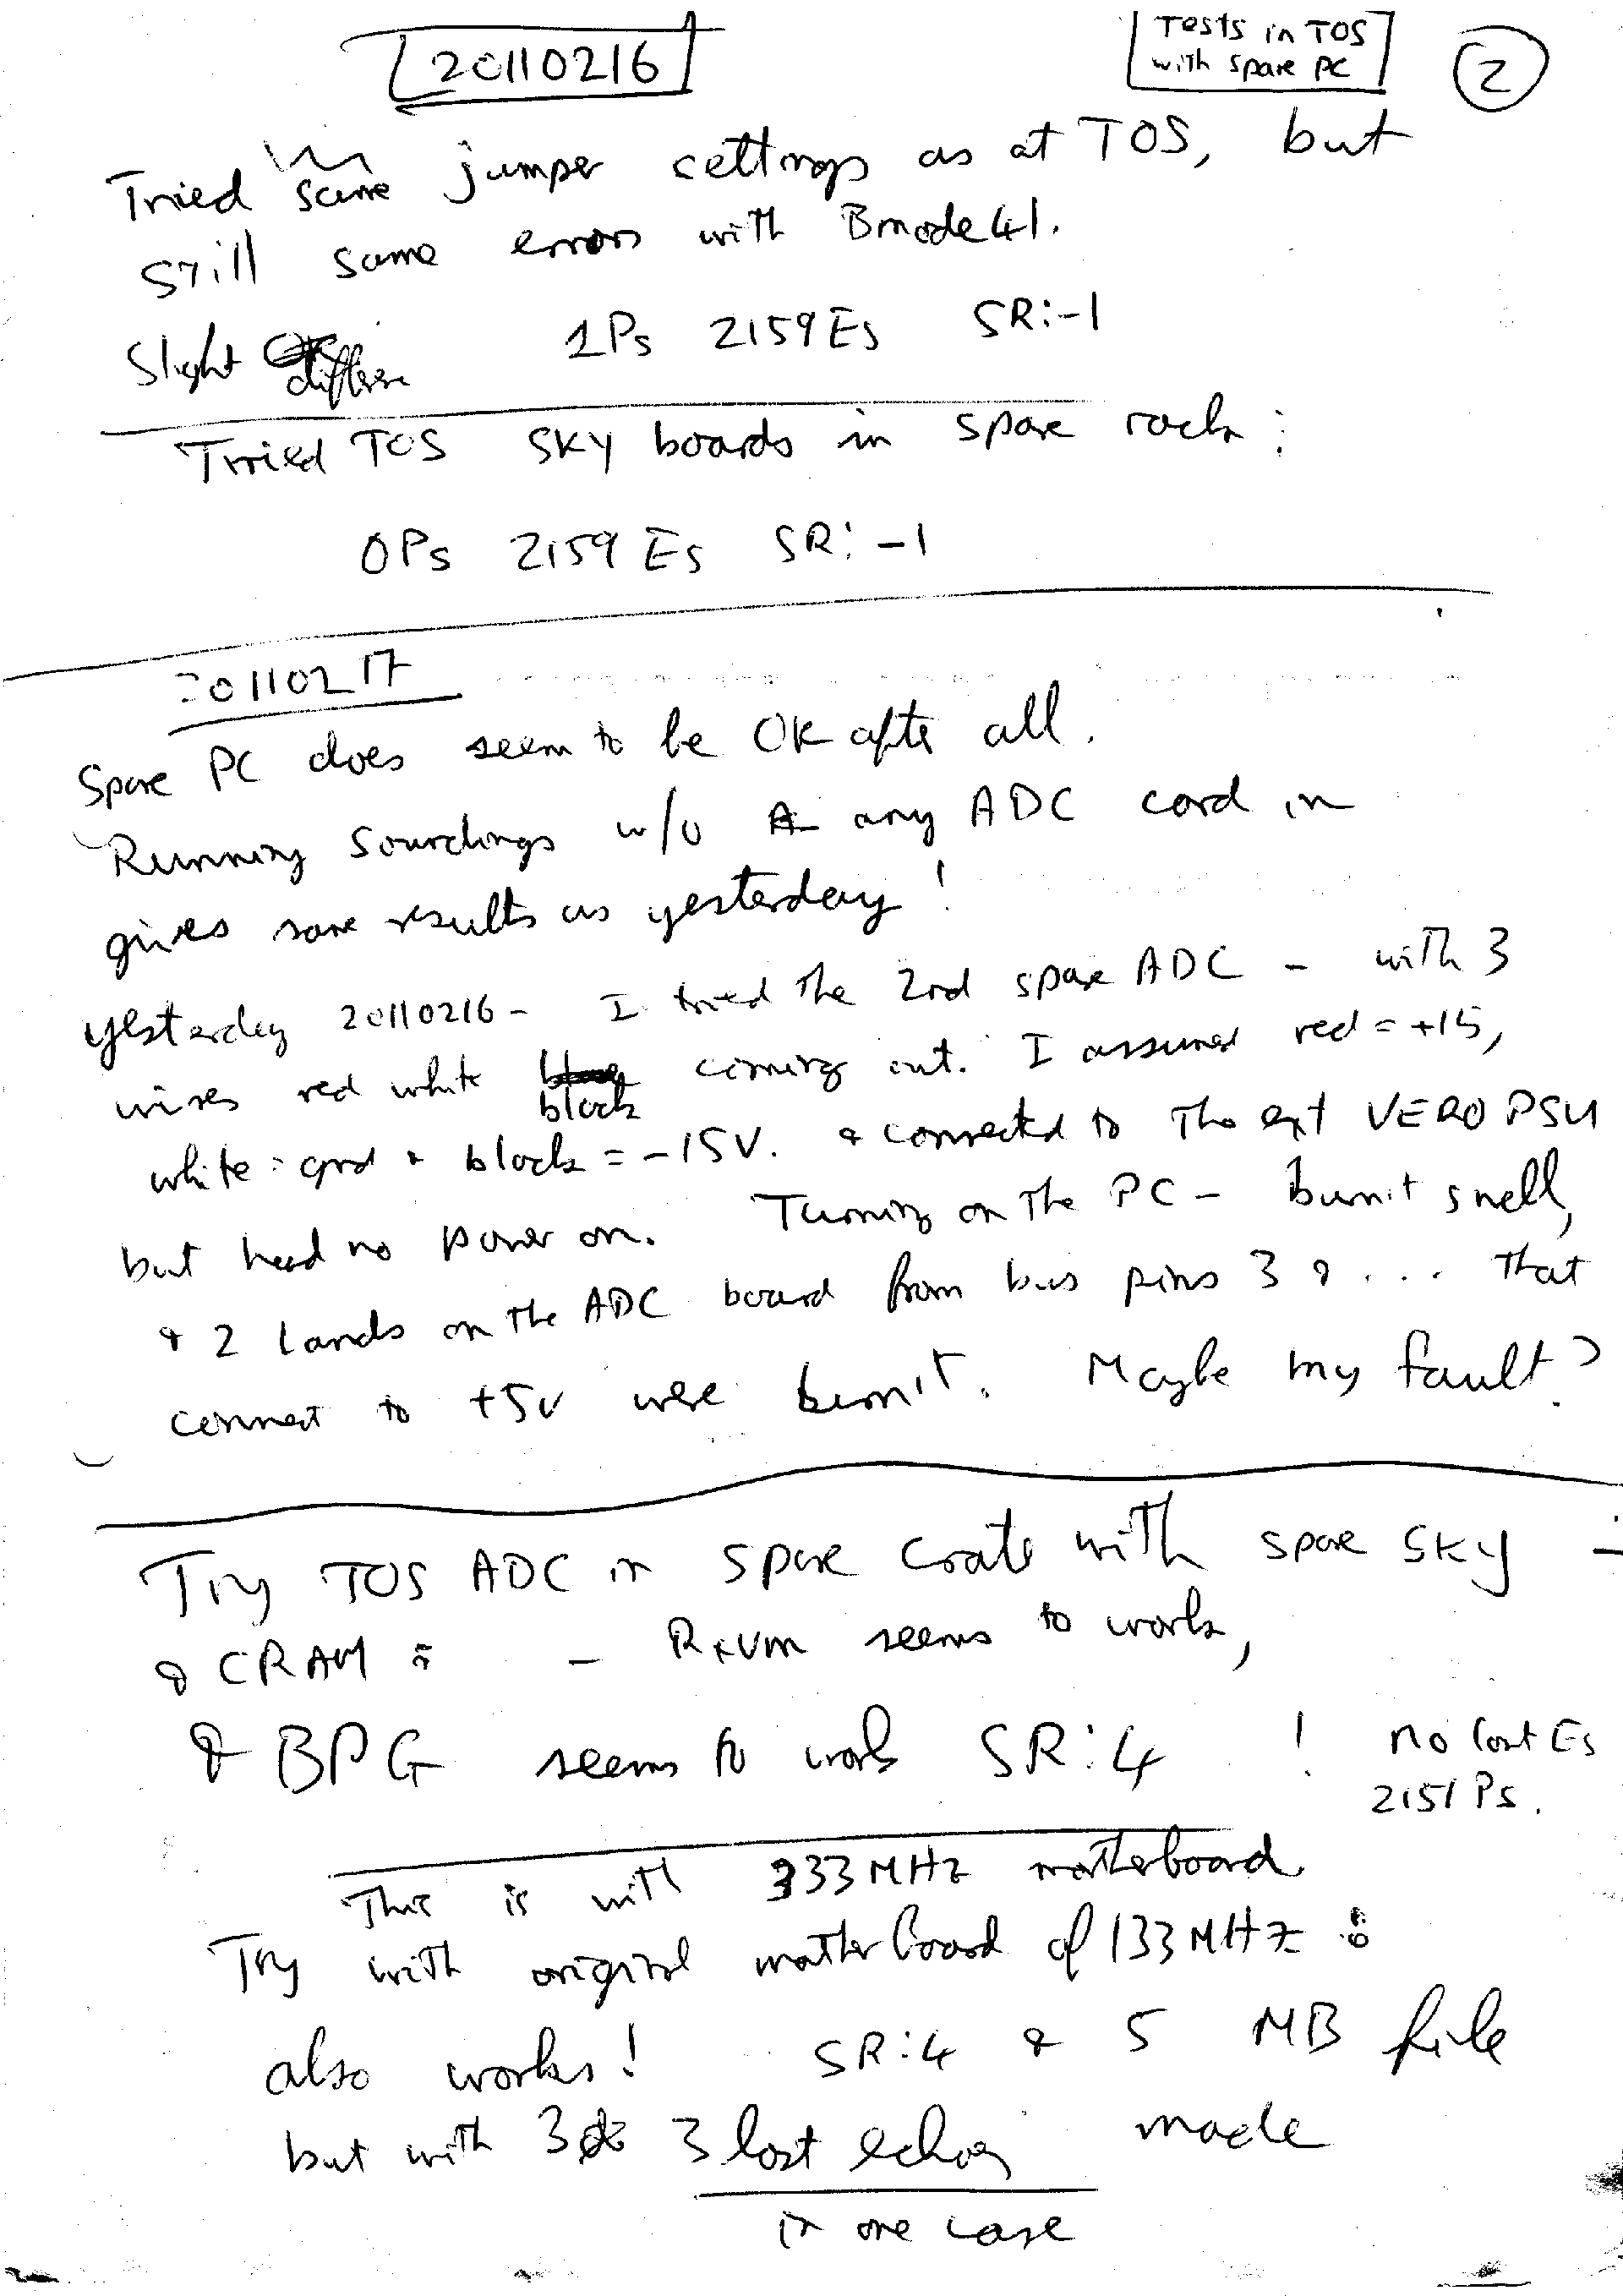 20110216
Tests in TOS
with spare PC
2
Tried same jumper settings as at TOS, but
still same errors with Bmode41.
Slight differen 1Ps 2159Es SR:-1
Tried TOS SKY boards in spare rack:
0Ps 2159 Es SR: -1
20110217
Spare PC does seem to be OK after all.
Running soundings w/o any ADC card in
gives same results as yesterday!
yesterday 20110216 - I tried the 2nd spare ADC - with 3
wires red white black coming out. I assumed red = +15,
white = grd & black = -15V. & connected to the ext VERO PSU
but had no power on. Turning on the PC - burnit smell,
& 2 lands on the ADC board from bus pins 3 & ... that
connect to +5v were burnit. Maybe my fault?
Try TOS ADC in spare crate with spare SKY -
& CRAM : - Rxvm seems to work,
& BPG seems to work SR:4 ! No lost Es
2151 Ps.
This is with 333MHz motherboard
Try with original motherboard of 133MHz :
also works! SR:4 & 5 MB file
but with 3 & 3 lost echoes made
in one case